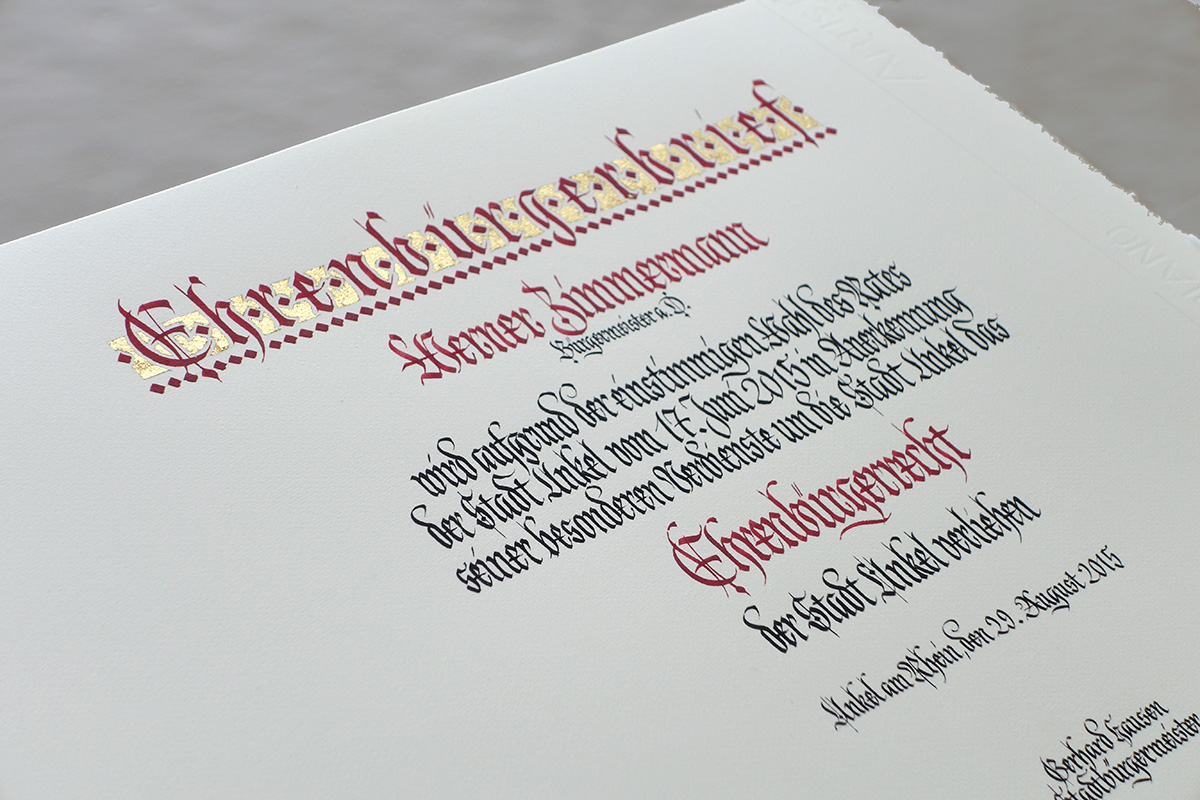 Ehrenbürgerbrief
Werner Zimmermann
Bürgermeister a. D.
wird aufgrund der einstimmigen Wahl des Rates
der Stadt Unkel vom 17. Juni 2015 in Anerkennung
seiner besonderen Verdienste um die Stadt Unkel das
Ehrenbürgerrecht
der Stadt Unkel verliehen
Unkel am Rhein, den 29. August 2015
Gerhard Hausen
Stadtbürgermeister